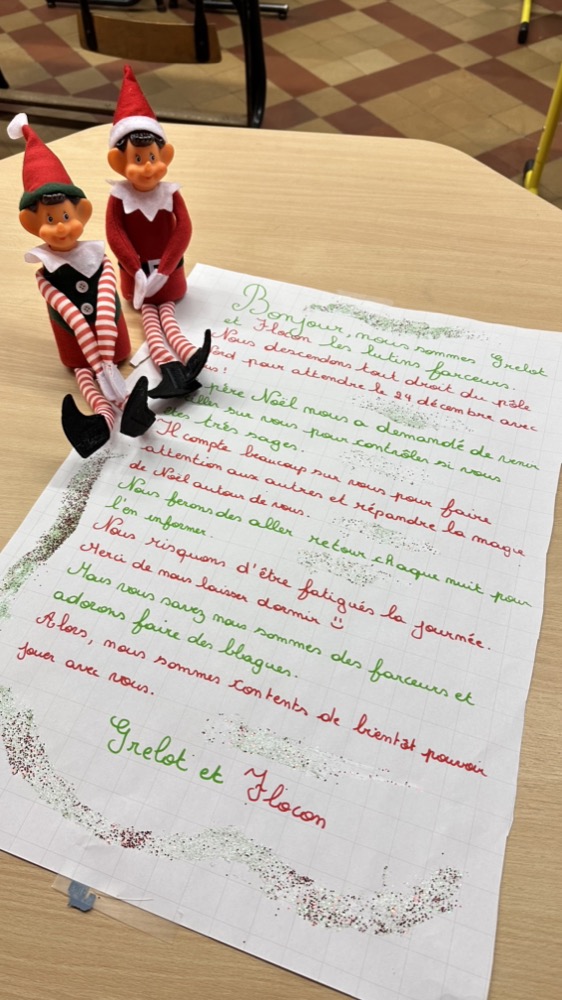 Bonjour, nous sommes Grelot
et Flocon les lutins farceurs.
Nous descendons tout droit du pôle
pour attendre le 24 décembre avec
!
père Noël nous a demandé de venir
sur vous pour contrôler si vous
très sages.
Il compte beaucoup sur vous pour faire
attention aux autres et répandre la magie
de Noël autour de vous.
Nous ferons des aller retour chaque nuit pour
l'en informer.
Nous risquons d'être fatigués la journée.
Merci de nous laisser dormir :)
Mais vous savez nous sommes des farceurs et
adorons faire des blagues.
Alors, nous sommes contents de bientôt pouvoir
jouer avec vous.
Grelot et Flocon